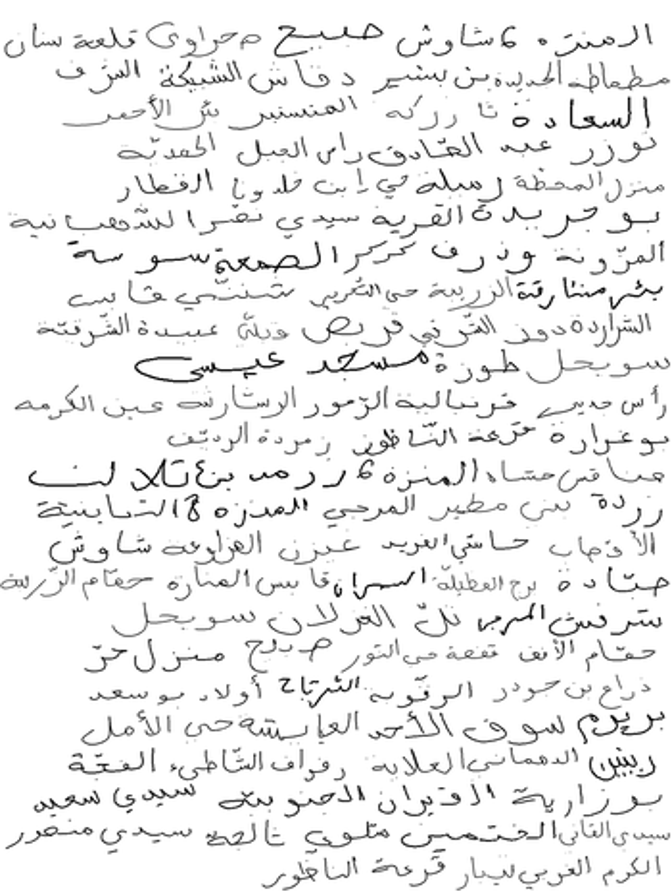 المنزه 6 شاوش صبيح صحراوي قلعة سنان
مطماطة الجديدة بن بشير دقاش الشبيكة الشرف
السعادة تازركة المنستير بئر الأحمر
توزر عبد الصادق رأس الجبل المحمدية
منزل المحطة رميلة حي ابن خلدون القطار
بوجريدة القرية سيدي نصر الشهبانية
المزونة وذرف كركر الصمعة سوسة
بئر مشارقة الزريبة حي التحرير شنني قابس
الشراردة دوز الشرقي قربص دقة عبيدة الشرقية
سويحل طوزة مسجد عيسى
رأس جدير قرنبالية الرمور الرستارية عين الكرمة
بوغرارة قرعة الناظور زمردة الرديف
صفاقس حشاد المنزه 6 رمد بن عتلالت
زردة بني مطير المرجي المنزه 8 الشبابنية
الأقصاب حاسي الفريد عيزن الفراوعة شاوش
حبادة برج العطيلة السمران قابس المنارة حمام الزريبة
شرفش المرجى تل الغزلان سويحل
حمام الأنف قفصة حي النور صبيح منزل حر
ذراع بن جودر الرقوبة الشرتاح أولاد بوسعد
بريرم سوق الأحد العيايشة حي الأمل
ربنين الدهماني العلاية رفراف الشاطئ الفجة
بوزارية القيروان الجنوبية سيدي سعيد
سيدي القاني الختمين متلوي ثالجة سيدي منصور
الكرم الغربي ليبار قرعة الناظور